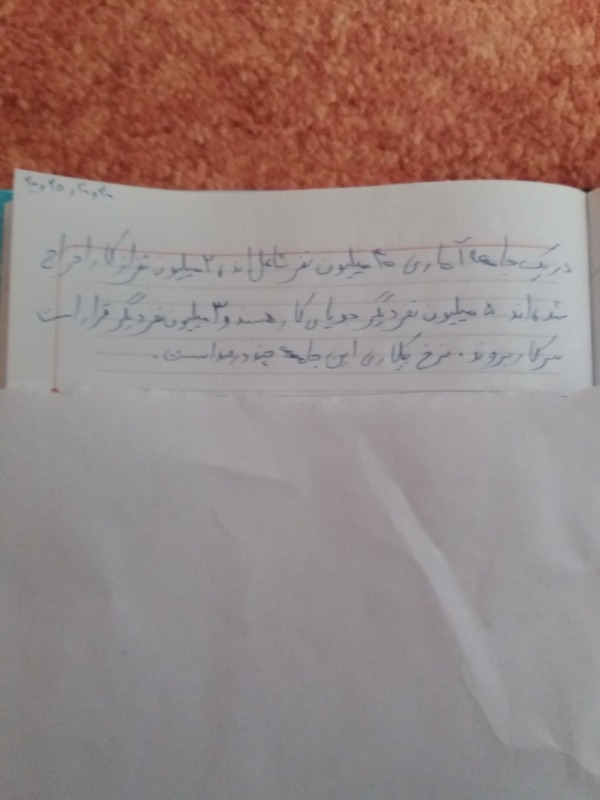 ۴۰ و ۳۰ و ۲۵ و ۲۰
در یک جامعه آماری ۴۰ میلیون نفر شاغل اند، ۲ میلیون نفر از کار اخراج
شده اند. ۵ میلیون نفر دیگر جویای کار هستند و ۳ میلیون نفر دیگر قرار است
سر کار بروند. نرخ بیکاری این جامعه چند درصد است.